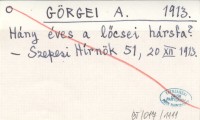 GÖRGEI A. 1913.
Hány éves a lőcsei hársfa?
– Szepesi Hírnök 51, 20 XII 1913.